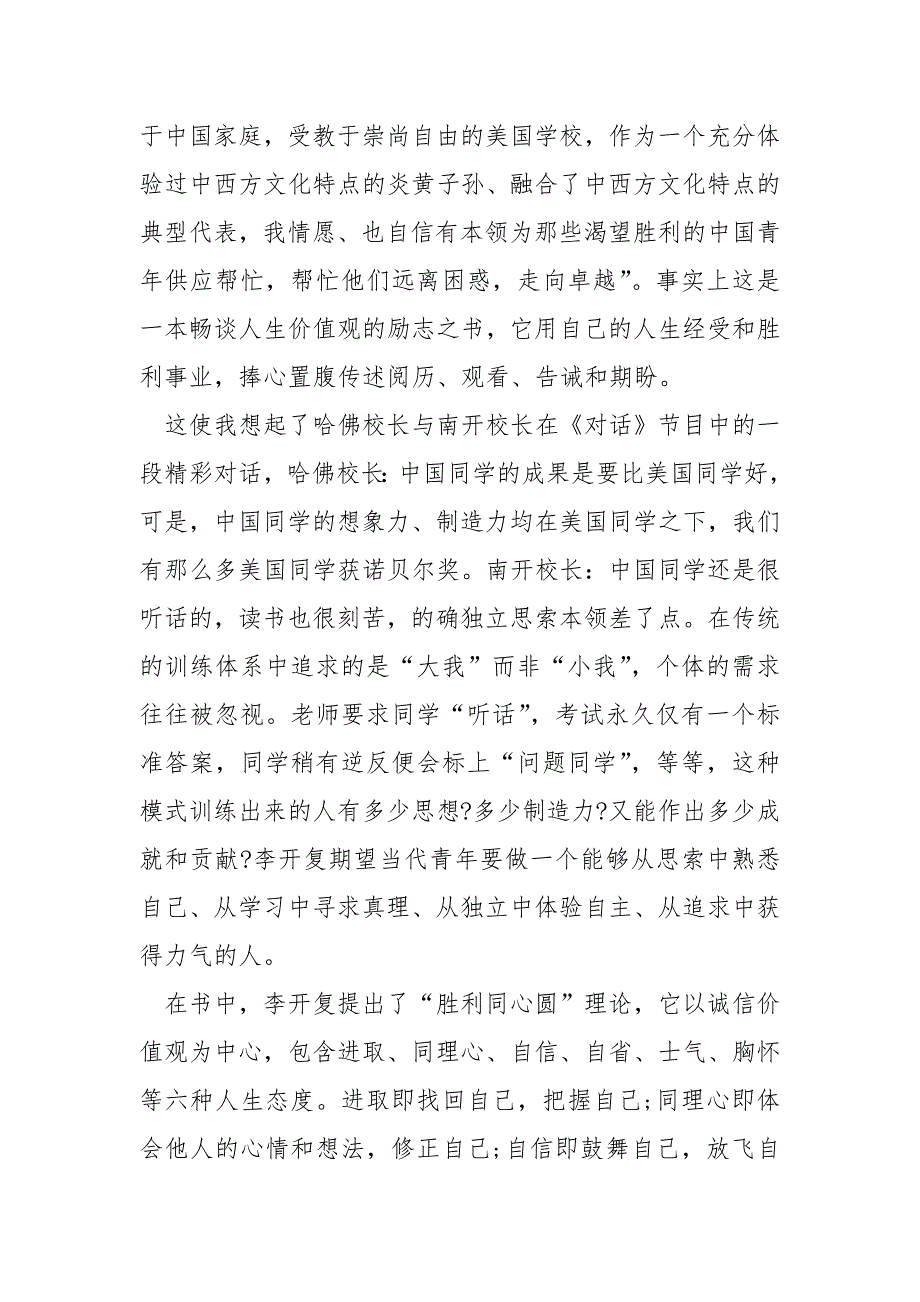 于中国家庭，受教于崇尚自由的美国学校，作为一个充分体
验过中西方文化特点的炎黄子孙、融合了中西方文化特点的
典型代表，我情愿、也自信有本领为那些渴望胜利的中国青
年供应帮忙，帮忙他们远离困惑，走向卓越”。事实上这是
一本畅谈人生价值观的励志之书，它用自己的人生经受和胜
利事业，捧心置腹传述阅历、观看、告诫和期盼。
这使我想起了哈佛校长与南开校长在《对话》节目中的一
段精彩对话，哈佛校长：中国同学的成果是要比美国同学好，
可是，中国同学的想象力、制造力均在美国同学之下，我们
有那么多美国同学获诺贝尔奖。南开校长：中国同学还是很
听话的，读书也很刻苦，的确独立思索本领差了点。在传统
的训练体系中追求的是“大我”而非“小我”，个体的需求
往往被忽视。老师要求同学“听话”，考试永久仅有一个标
准答案，同学稍有逆反便会标上“问题同学”，等等，这种
模式训练出来的人有多少思想?多少制造力?又能作出多少成
就和贡献?李开复期望当代青年要做一个能够从思索中熟悉
自己、从学习中寻求真理、从独立中体验自主、从追求中获
得力气的人。
在书中，李开复提出了“胜利同心圆”理论，它以诚信价
值观为中心，包含进取、同理心、自信、自省、士气、胸怀
等六种人生态度。进取即找回自己，把握自己;同理心即体
会他人的心情和想法，修正自己;自信即鼓舞自己，放飞自